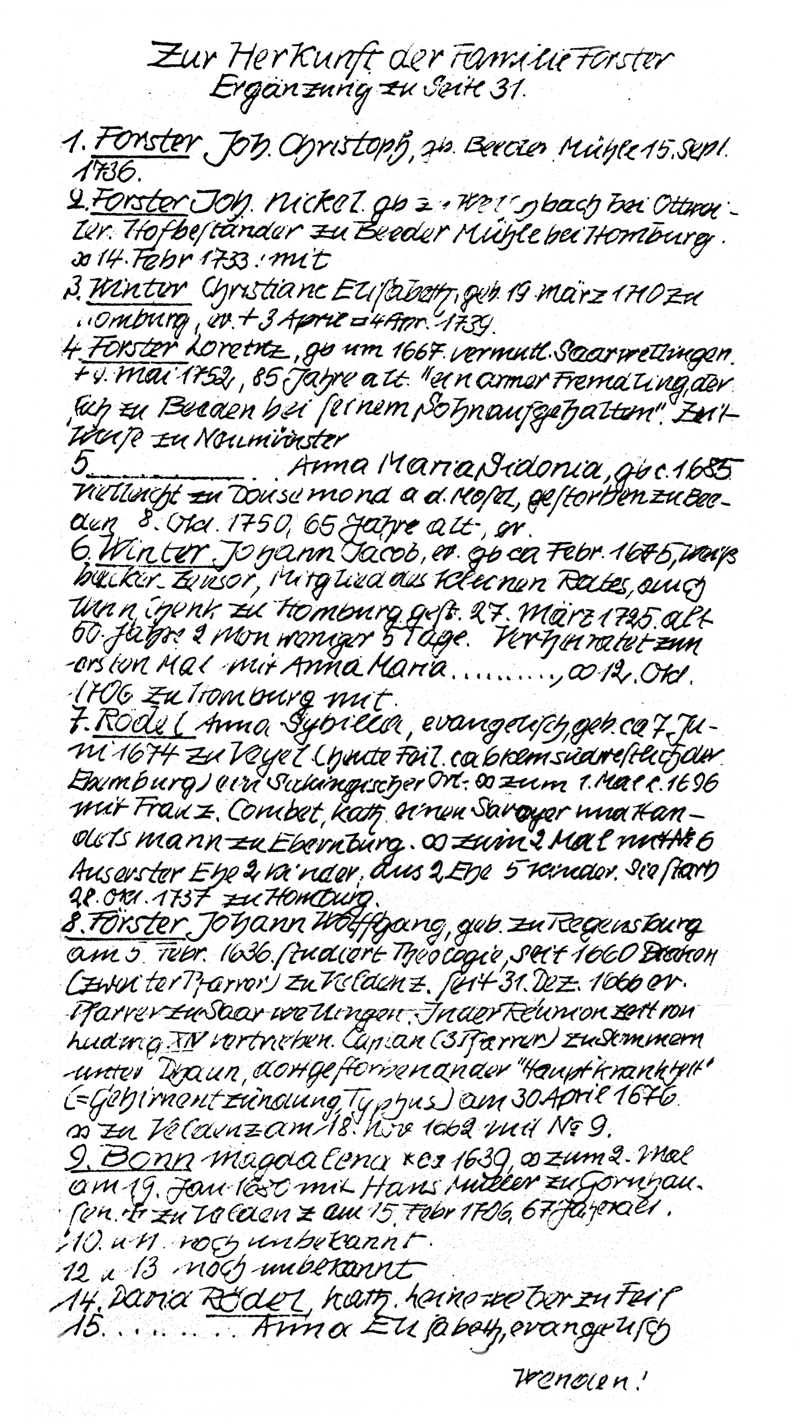 Zur Herkunft der Familie Forster
Ergänzung zu Seite 31.
1. Forster Joh. Christoph, gb. Beeder Mühle 15. Sept.
1736.
2. Forster Joh. Nickel. gb z. bach bei Ottwei-
ler. Hofbeständer zu Beeder Mühle bei Homburg.
∞ 14. Febr 1733. mit
3. Winter Christiane Elisabeth, geb. 19 März 1710 zu
omburg, ev. + 3 April □ 4 Apr. 1739.
4. Forster Lorentz, gb um 1667. vermutl. Saarwellingen.
+ Mai 1752, 85 Jahre alt "ein armer Fremdling, der
sich zu Beeden bei seinem Sohn aufgehalten". Zeit-
weise zu Neumünster
5............ Anna Maria Sidonia, gb c. 1685
vielleicht zu Dousemond a d. Mosel, gestorben zu Bee-
den 8. Okt. 1750, 65 Jahre alt, ev.
6. Winter Johann Jacob, ev. gb ca Febr. 1675, Weiß
becker Zensor, Mitglied des kleinen Rates, auch
zu Homburg gest. 27. März 1725. alt
50 Jahre 2 Mon weniger 5 Tage. Verheiratet zum
ersten Mal mit Anna Maria .........., ∞ 12. Okt.
1706 zu Homburg mit.
7. Rödel Anna Sybilla, evangelisch, geb. ca 7. Ju-
ni 1674 zu (heute Feil. ca 6 km südwestlich der
Ebernburg) ein Sickingischer Ort. ∞ zum 1. Mal c. 1696
mit Franz. Combet, kath. einen Savoyer und Han-
delsmann zu Ebernburg. ∞ zum 2 Mal mit № 6
Aus erster Ehe 2 Kinder, aus 2 Ehe 5 Kinder. Sie starb
28. Okt. 1737 zu Homburg.
8. Förster Johann Wolffgang, geb. zu Regensburg
am 5. Febr. 1636. studiert Theologie, seit 1660 Diakon
(zweiter Pfarrer) zu Veldenz. seit 31. Dez. 1666 ev.
Pfarrer zu Saarwellingen. In der Réunionzeit von
Ludwig XIV vertrieben. Caplan (3 Pfarrer) zu Simmern
unter Dhaun, dort gestorben an der "Hauptkrankheit"
(=Gehirnentzündung, Typhus) am 30 April 1676.
∞ zu Veldenz am 18. Nov 1662 mit № 9.
9. Bonn Magdalena *ca 1639, ∞ zum 2. Mal
am 19. Jan 1680 mit Hans Müller zu Gornhau-
sen. + zu Veldenz am 15. Febr 1706, 67 Jahre alt.
10. u 11. noch unbekannt.
12 u 13 noch unbekannt
14. Rödel, kath. Leineweber zu Feil
15. . . . . . . . . Anna Elisabeth, evangelisch
Wenden!